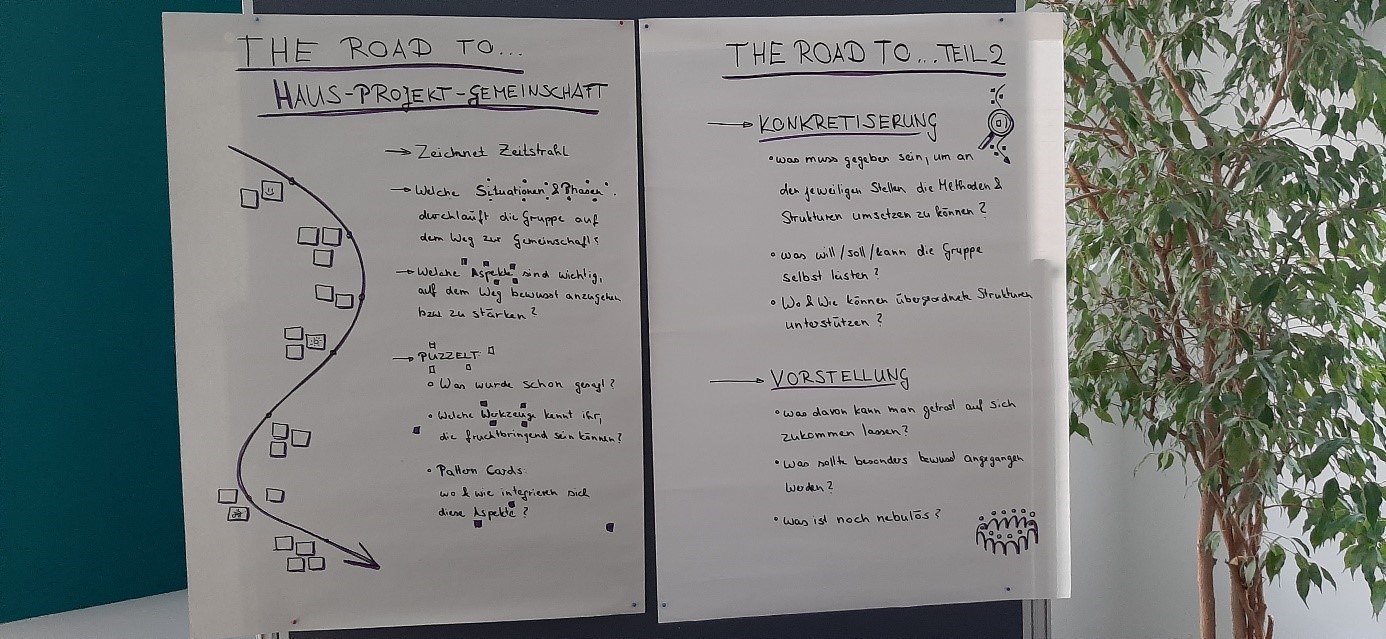 THE ROAD TO...
HAUS-PROJEKT-GEMEINSCHAFT
→ Zeichnet Zeitstrahl
→ Welche Situationen & Phasen
durchläuft die Gruppe auf
dem Weg zur Gemeinschaft?
→ Welche Aspekte sind wichtig,
auf dem Weg bewusst anzugehen
bzw zu stärken?
→ PUZZELT
• Was wurde schon gesagt?
• Welche Werkzeuge kennt ihr,
die fruchtbringend sein können?
• Pattern Cards:
wo & wie integrieren sich
diese Aspekte?
THE ROAD TO... TEIL 2
→ KONKRETISERUNG
• was muss gegeben sein, um an
den jeweiligen Stellen die Methoden &
Strukturen umsetzen zu können?
• was will/soll/kann die Gruppe
selbst leisten?
• Wo & Wie können übergeordnete Strukturen
unterstützen?
→ VORSTELLUNG
• was davon kann man getrost auf sich
zukommen lassen?
• Was sollte besonders bewusst angegangen
werden?
• Was ist noch nebulös?